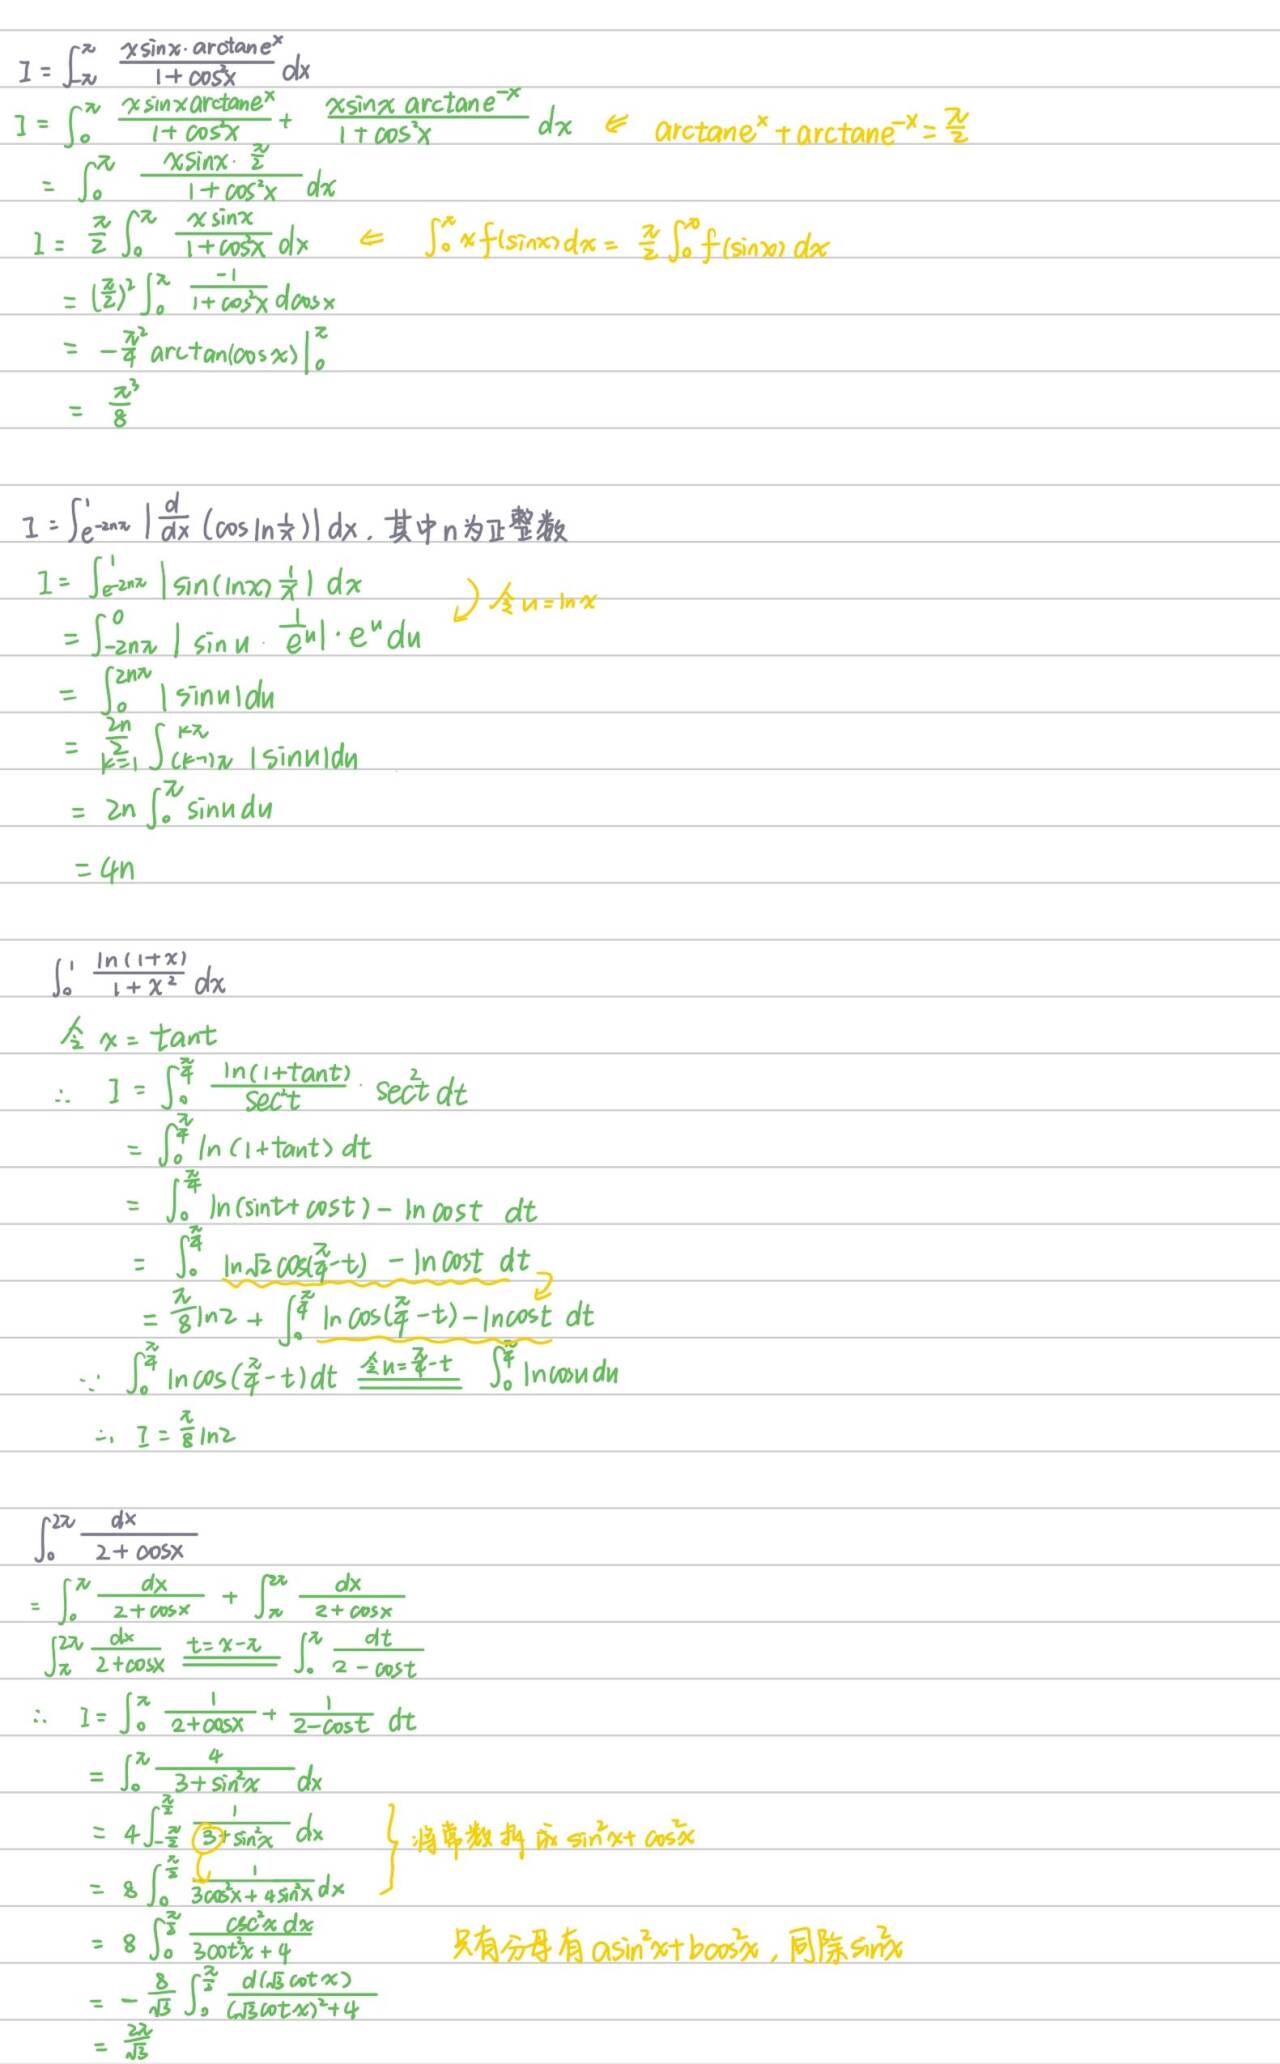 I = ∫_{-π}^{π} (x sinx · arctane^x)/(1+cos²x) dx
I = ∫_0^π (x sinx arctane^x)/(1+cos²x) + (x sinx arctane^{-x})/(1+cos²x) dx ⇐ arctane^x + arctane^{-x} = π/2
= ∫_0^π (x sinx · π/2)/(1+cos²x) dx
I = π/2 ∫_0^π (x sinx)/(1+cos²x) dx ⇐ ∫_0^π x f(sinx) dx = π/2 ∫_0^π f(sinx) dx
= (π/2)² ∫_0^π (-1)/(1+cos²x) dcosx
= -π²/4 arctan(cosx) |_0^π
= π³/8
I = ∫_{e^{-2nπ}}^1 |d/dx (cos ln 1/x)| dx. 其中n为正整数
I = ∫_{e^{-2nπ}}^1 |sin(lnx) 1/x| dx
令u=lnx
= ∫_{-2nπ}^0 |sinu · 1/e^u| · e^u du
= ∫_0^{2nπ} |sinu|du
= Σ_{k=1}^{2n} ∫_{(k-1)π}^{kπ} |sinu|du
= 2n ∫_0^π sinu du
= 4n
∫_0^1 ln(1+x)/(1+x²) dx
令 x = tant
∴ I = ∫_0^{π/4} ln(1+tant)/sec²t · sec²t dt
= ∫_0^{π/4} ln(1+tant) dt
= ∫_0^{π/4} ln(sint+cost) - lncost dt
= ∫_0^{π/4} ln√2cos(π/4-t) - lncost dt
= π/8 ln2 + ∫_0^{π/4} lncos(π/4-t) - lncost dt
∵ ∫_0^{π/4} lncos(π/4-t)dt 令u=π/4-t ∫_0^{π/4} lncosudu
∴ I = π/8 ln2
∫_0^{2π} dx/(2+cosx)
= ∫_0^π dx/(2+cosx) + ∫_π^{2π} dx/(2+cosx)
∫_π^{2π} dx/(2+cosx) t=x-π ∫_0^π dt/(2-cost)
∴ I = ∫_0^π 1/(2+cosx) + 1/(2-cost) dt
= ∫_0^π 4/(3+sin²x) dx
= 4∫_{-π/2}^{π/2} 1/(3+sin²x) dx 将常数拆成 sin²x+cos²x
= 8 ∫_0^{π/2} 1/(3cos²x+4sin²x) dx
= 8 ∫_0^{π/2} csc²x dx/(3cot²x+4) 只有分母有 asin²x+bcos²x, 同除sin²x
= -8/√3 ∫_0^{π/2} d(√3cotx)/((√3cotx)²+4)
= 2π/√3